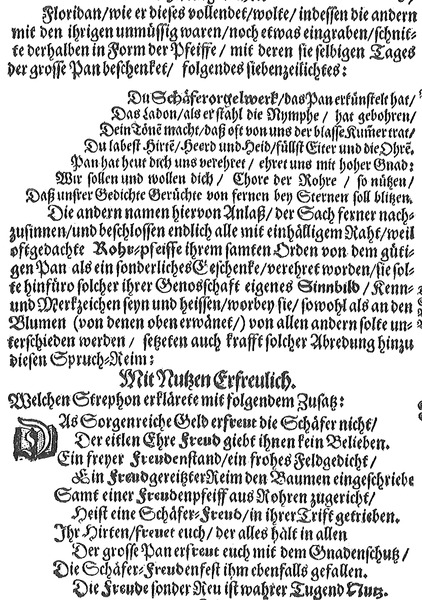 Floridan/wie er dieses vollendet/wolte/indessen die andern
mit den ihrigen unmüssig waren/noch etwas eingraben/schnit-
te derhalben in Form der Pfeiffe/ mit deren sie selbigen Tages
der grosse Pan beschenket/ folgendes siebenzeilichtes:
Du Schäferorgelwerk/das Pan erkünstelt hat/
Das Ladon/als er stahl die Nymphe/ hat gebohren/
Dein Töne macht/daß oft von uns der blasse Kum̃er trat/
Du labest Hirtẽ/Heerd und Heid/füllst Eiter und die Ohrẽ.
Pan hat heut dich uns verehret/ ehret uns mit hoher Gnad:
Wir sollen und wollen dich/ Chore der Rohre/ so nützen/
Daß unsrer Gedichte Gerüchte von fernen bey Sternen soll blitzen.
Die andern namen hiervon Anlaß/ der Sach ferner nach-
zusinnen/und beschlossen endlich alle mit einhälligem Raht/weil
oftgedachte Rohr-pfeiffe ihrem samten Orden von dem güti-
gen Pan als ein sonderliches Geschenke/verehret worden/sie sol-
te hinfüro solcher ihrer Genoßschaft eigenes Sinnbild/Kenn-
und Merkzeichen seyn und heissen/worbey sie/sowohl als an den
Blumen (von denen oben erwänet/) von allen andern solte un-
terschieden werden/ setzeten auch krafft solcher Abredung hinzu
diesen Spruch-Reim:
Mit Nutzen Erfreulich.
Welchen Strephon erklärete mit folgendem Zusatz:
DAs Sorgenreiche Geld erfreut die Schäfer nicht/
Der eitlen Ehre Freud giebt ihnen kein Belieben.
Ein freyer Freudenstand/ein frohes Feldgedicht/
Ein Freudgereitzter Reim den Baumen eingeschriebe
Samt einer Freudenpfeiff aus Rohren zugericht/
Heist eine Schäfer-Freud/in ihrer Trift getrieben.
Ihr Hirten/freuet euch/ der alles hält in allen
Der grosse Pan erfreut euch mit dem Gnadenschutz/
Die Schäfer-Freudenfest ihm ebenfalls gefallen.
Die Freude sonder Reu ist wahrer Tugend Nutz.